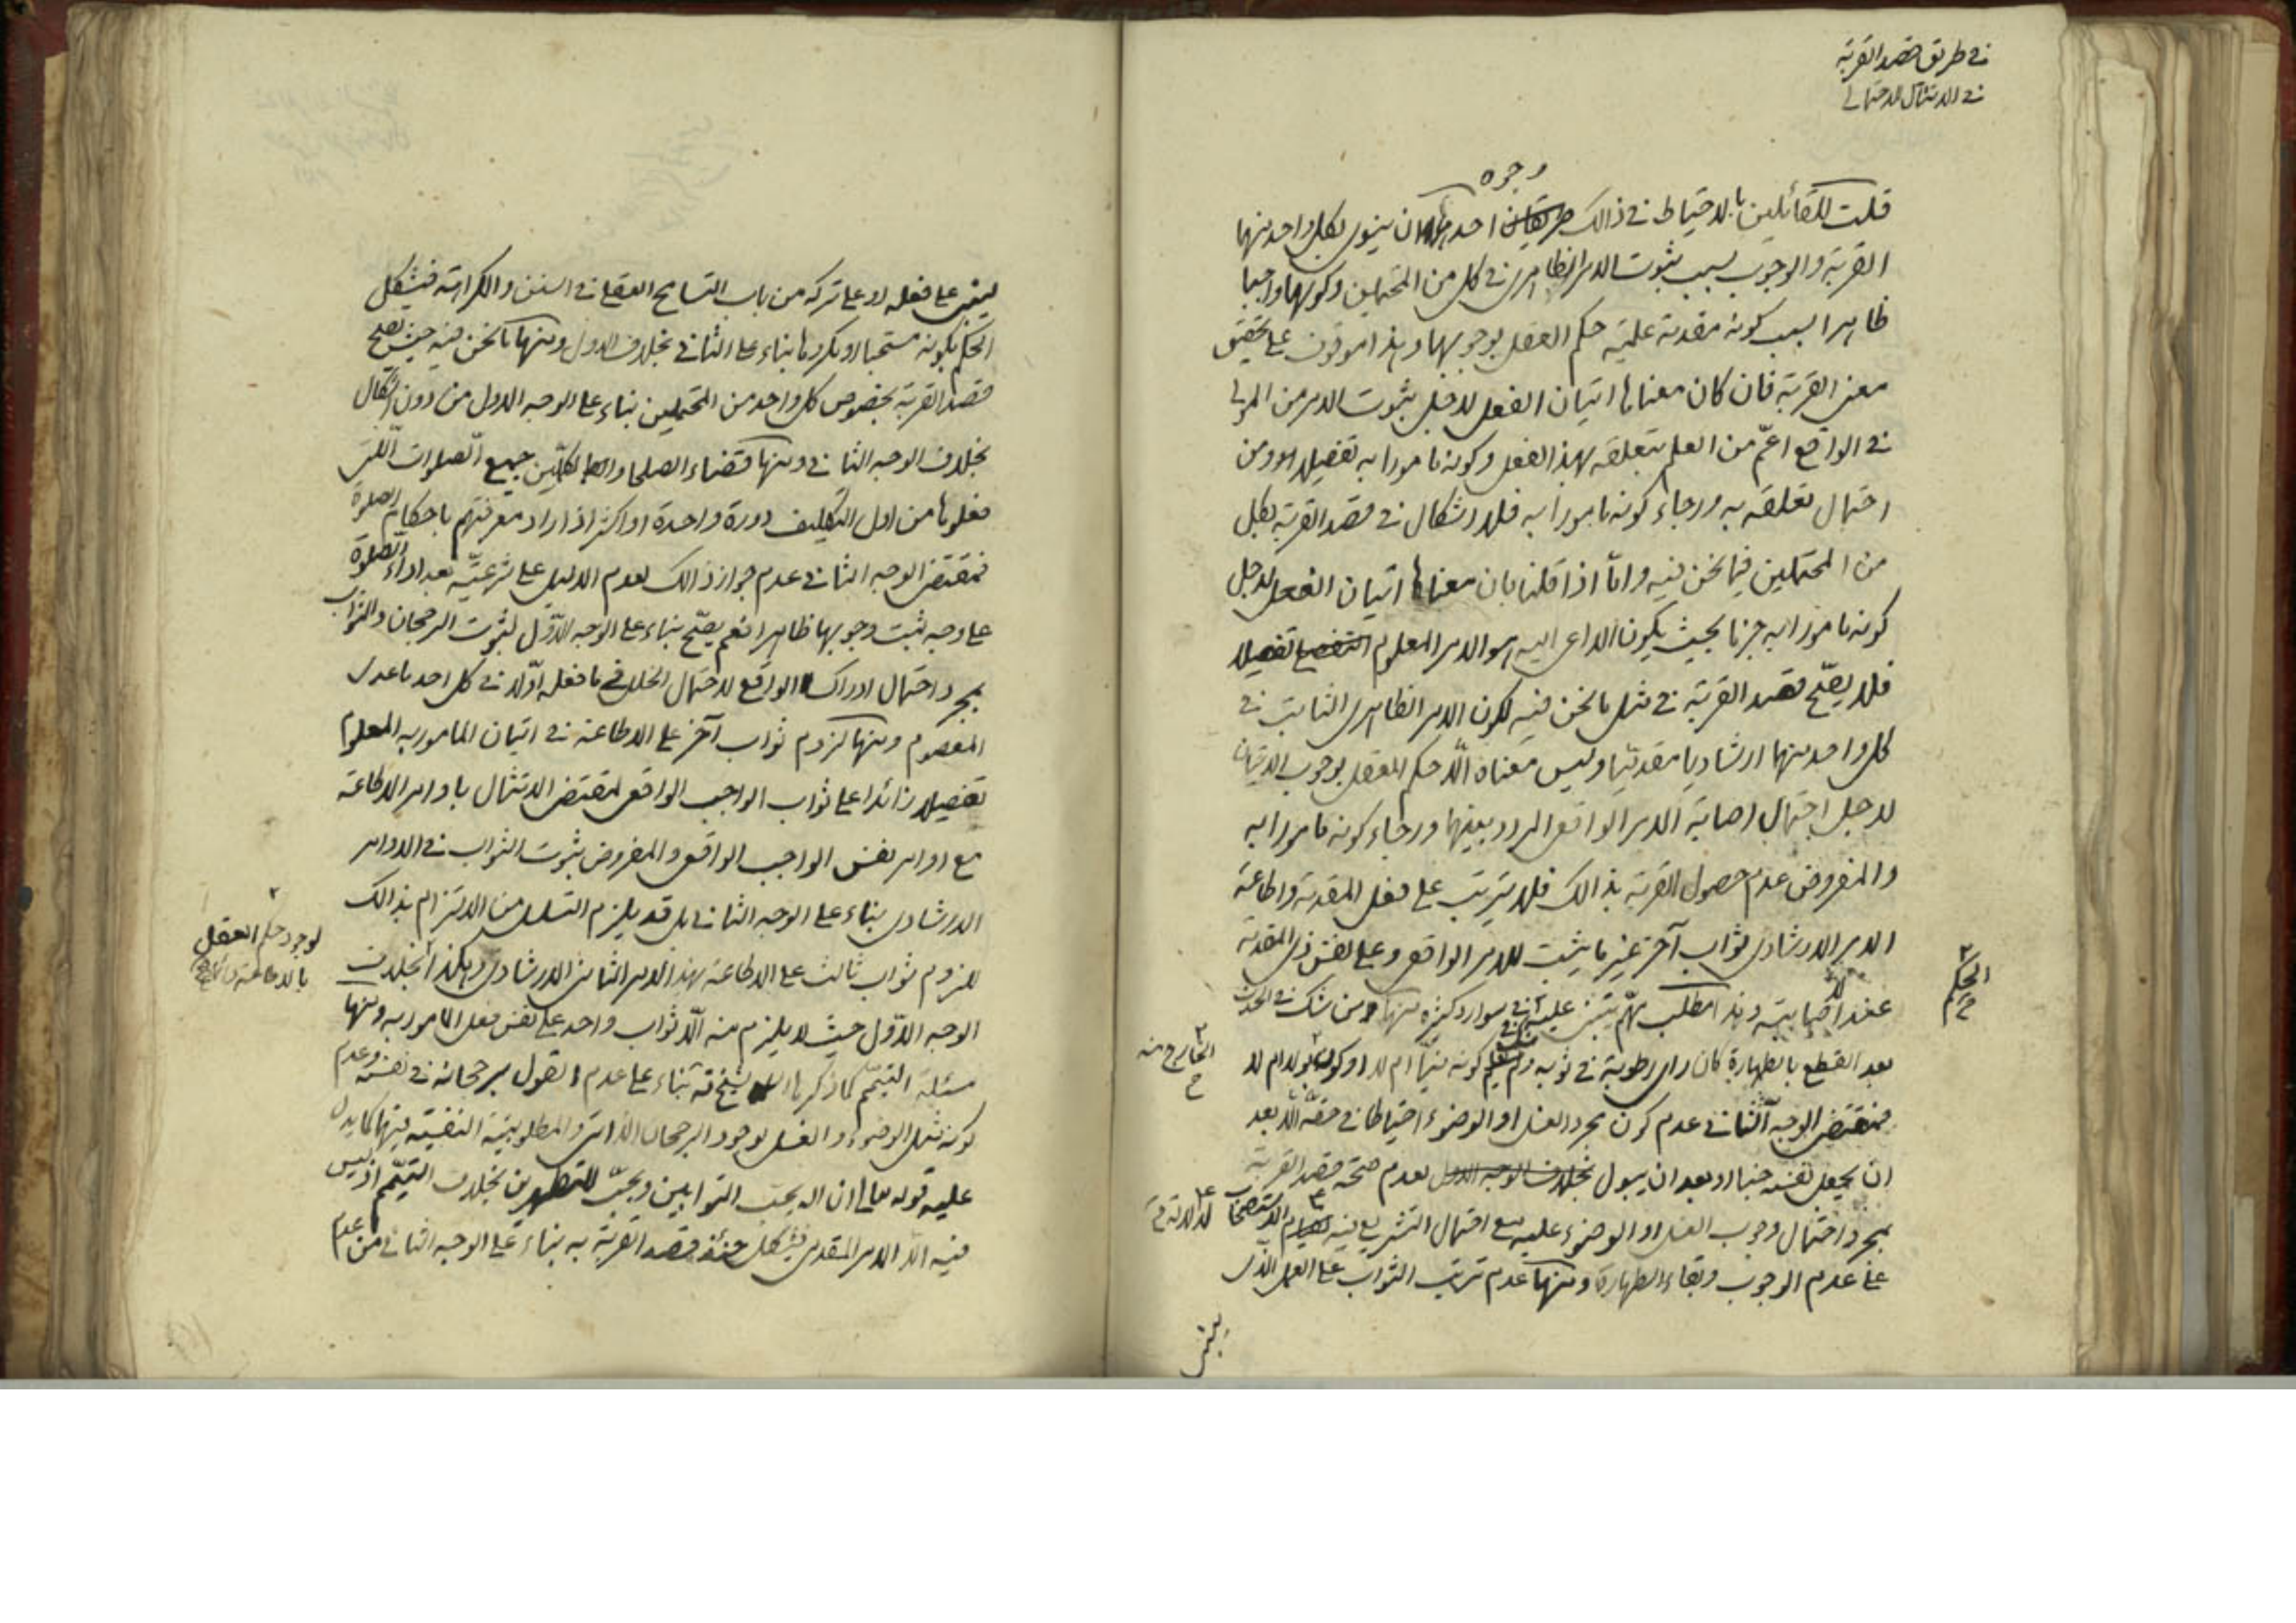 في طريق قصد القربة
في الامتثال الاحتمالي
وجوه
قلت للقائلين بالاحتياط في ذالك طريقان احدها ان ينوي بكل واحد منهما
القربة والوجوب بسبب ثبوت الامر الظاهري في كل من المحتملين وكونهما واجبا
ظاهرا بسبب كونه مقدمة علمية حكم العقل بوجوبها وهذا موقوف على تحقيق
معنى القربة فان كان معناها اتيان الفعل لاجل ثبوت الامر من المولى
في الواقع اعمّ من العلم بتعلقه بهذا الفعل وكونه مامورا به تفصيلا ومن
احتمال تعلقه به ورجاء كونه مامورا به فلا اشكال في قصد القربة بكل
من المحتملين فيما نحن فيه وامّا اذا قلنا بان معناها اتيان الفعل لاجل
كونه مامورا به جزما بحيث يكون الداعي اليه هو الامر المعلوم تفصيلا
فلا يصحّ قصد القربة في مثل ما نحن فيه لكون الامر الظاهري الثابت في
كل واحد منهما ارشاديا مقدميا وليس معناه الّا حكم العقل بوجوب الاتيان
لاجل احتمال اصابة الامر الواقعي المردد بينهما ورجاء كونه مامورا به
والمفروض عدم حصول القربة بذالك فلا يترتب على فعل المقدمة واطاعة
الامر الارشادي ثواب آخر غير ما يثبت للامر الواقعي وعلى نفس ذي المقدمة
عند اصابته وهذا مطلب مهمّ يبتني عليه في موارد كثيرة منها من شك في الحدث
الحكم
بعد القطع بالطهارة كان راى رطوبة في ثوبه ولم يعلم كونه منيّا ام لا او كونه بولا ام لا
الخارج منه
فمقتضى الوجه الثاني عدم كون مجرد الغسل او الوضوء احتياطا في حقه الّا بعد
ان يجعل نفسه جنبا او بعد ان يبول بخلاف الوجه الاول لعدم صحة قصد القربة
بمجرد احتمال وجوب الغسل او الوضوء عليه مع احتمال التشريع فيه لقيام الاستصحاب
على عدم الوجوب وبقاء الطهارة ومنها عدم ترتب الثواب على العمل الذي
يبتنى
يبتنى على فعله او على تركه من باب التسامح العقلي في السنن والكراهة فيشكل
الحكم بكونه مستحبا او مكروها بناء على الثاني بخلاف الاول ومنها ما نحن فيه حيث يصح
قصد القربة بخصوص كل واحد من المحتملين بناء على الوجه الاول من دون اشكال
بخلاف الوجه الثاني ومنها قضاء الصلحاء والكملين جميع الصلوات التي
فعلوها من اول التكليف دورة واحدة او اكثر اذا زاد معرفتهم باحكام الصلوة
فمقتضى الوجه الثاني عدم جواز ذالك لعدم الدليل على شرعيّته بعد اداء الصلوة
على وجه يثبت وجوبها ظاهرا نعم يصحّ بناء على الوجه الاوّل لثبوت الرجحان والثواب
بمجرد احتمال ادراك الواقع لاحتمال الخلل في ما فعله اوّلا في كل احد ما عدى
المعصوم ومنها لزوم ثواب آخر على الاطاعة في اتيان المامور به المعلوم
تفصيلا زائدا على ثواب الواجب الواقعي لمقتضى الامتثال باوامر الاطاعة
مع اوامر نفس الواجب الواقعي والمفروض ثبوت الثواب في الاوامر
الارشادي بناء على الوجه الثاني بل قد يلزم التسلسل من الالتزام بذالك
لوجود حكم العقل
بالاطاعة
للزوم ثواب ثالث على الاطاعة بهذا الامر الثاني الارشادي وهكذا بخلاف
الوجه الاوّل حيث لا يلزم منه الّا ثواب واحد على نفس فعل المامور به ومنها
مسئلة التيمّم كما ذكرها الشيخ بناء على عدم القول برجحانه في نفسه وعدم
كونه مثل الوضوء والغسل لوجود الرجحان الذاتي والمطلوبية النفسية فيهما كما يدل
عليه قوله تعالى ان الله يحب التوابين ويحبّ المتطهرين بخلاف التيمّم اذ ليس
فيه الّا الامر المقدمي فيشكل حينئذ قصد القربة به بناء على الوجه الثاني من عدم